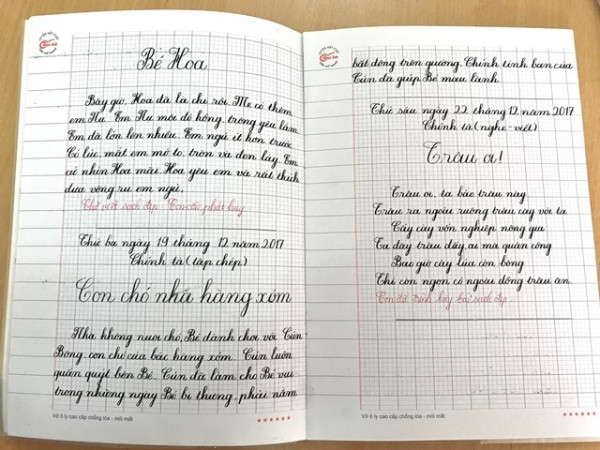 Bé Hoa
Bây giờ, Hoa đã là chị rồi. Mẹ có thêm
em Nụ. Em Nụ môi đỏ hồng, trông yêu lắm.
Em đã lớn lên nhiều. Em ngủ ít hơn trước.
Có lúc, mắt em mở to, tròn và đen láy. Em
cứ nhìn Hoa mãi. Hoa yêu em và rất thích
đưa võng ru em ngủ.
Chữ viết sạch đẹp. Con cần phát huy
Thứ ba ngày 19 tháng 12 năm 2017
Chính tả (tập chép)
Con chó nhà hàng xóm
Nhà không nuôi chó, Bé đành chơi với Cún
Bông, con chó của bác hàng xóm. Cún luôn
quấn quýt bên Bé. Cún đã làm cho Bé vui
trong những ngày Bé bị thương, phải nằm
Vở ô ly cao cấp chống lóa - mỏi mắt
bất động trên giường. Chính tình bạn của
Cún đã giúp Bé mau lành.
Thứ sáu ngày 22 tháng 12 năm 2017
Chính tả (nghe - viết)
Trâu ơi!
Trâu ơi, ta bảo trâu này
Trâu ra ngoài ruộng trâu cày với ta
Cấy cày vốn nghiệp nông gia
Ta đây trâu đấy, ai mà quản công
Bao giờ cây lúa còn bông
Thì còn ngọn cỏ ngoài đồng trâu ăn.
Con đã trình bày bài sạch đẹp
Vở ô ly cao cấp chống lóa - mỏi mắt